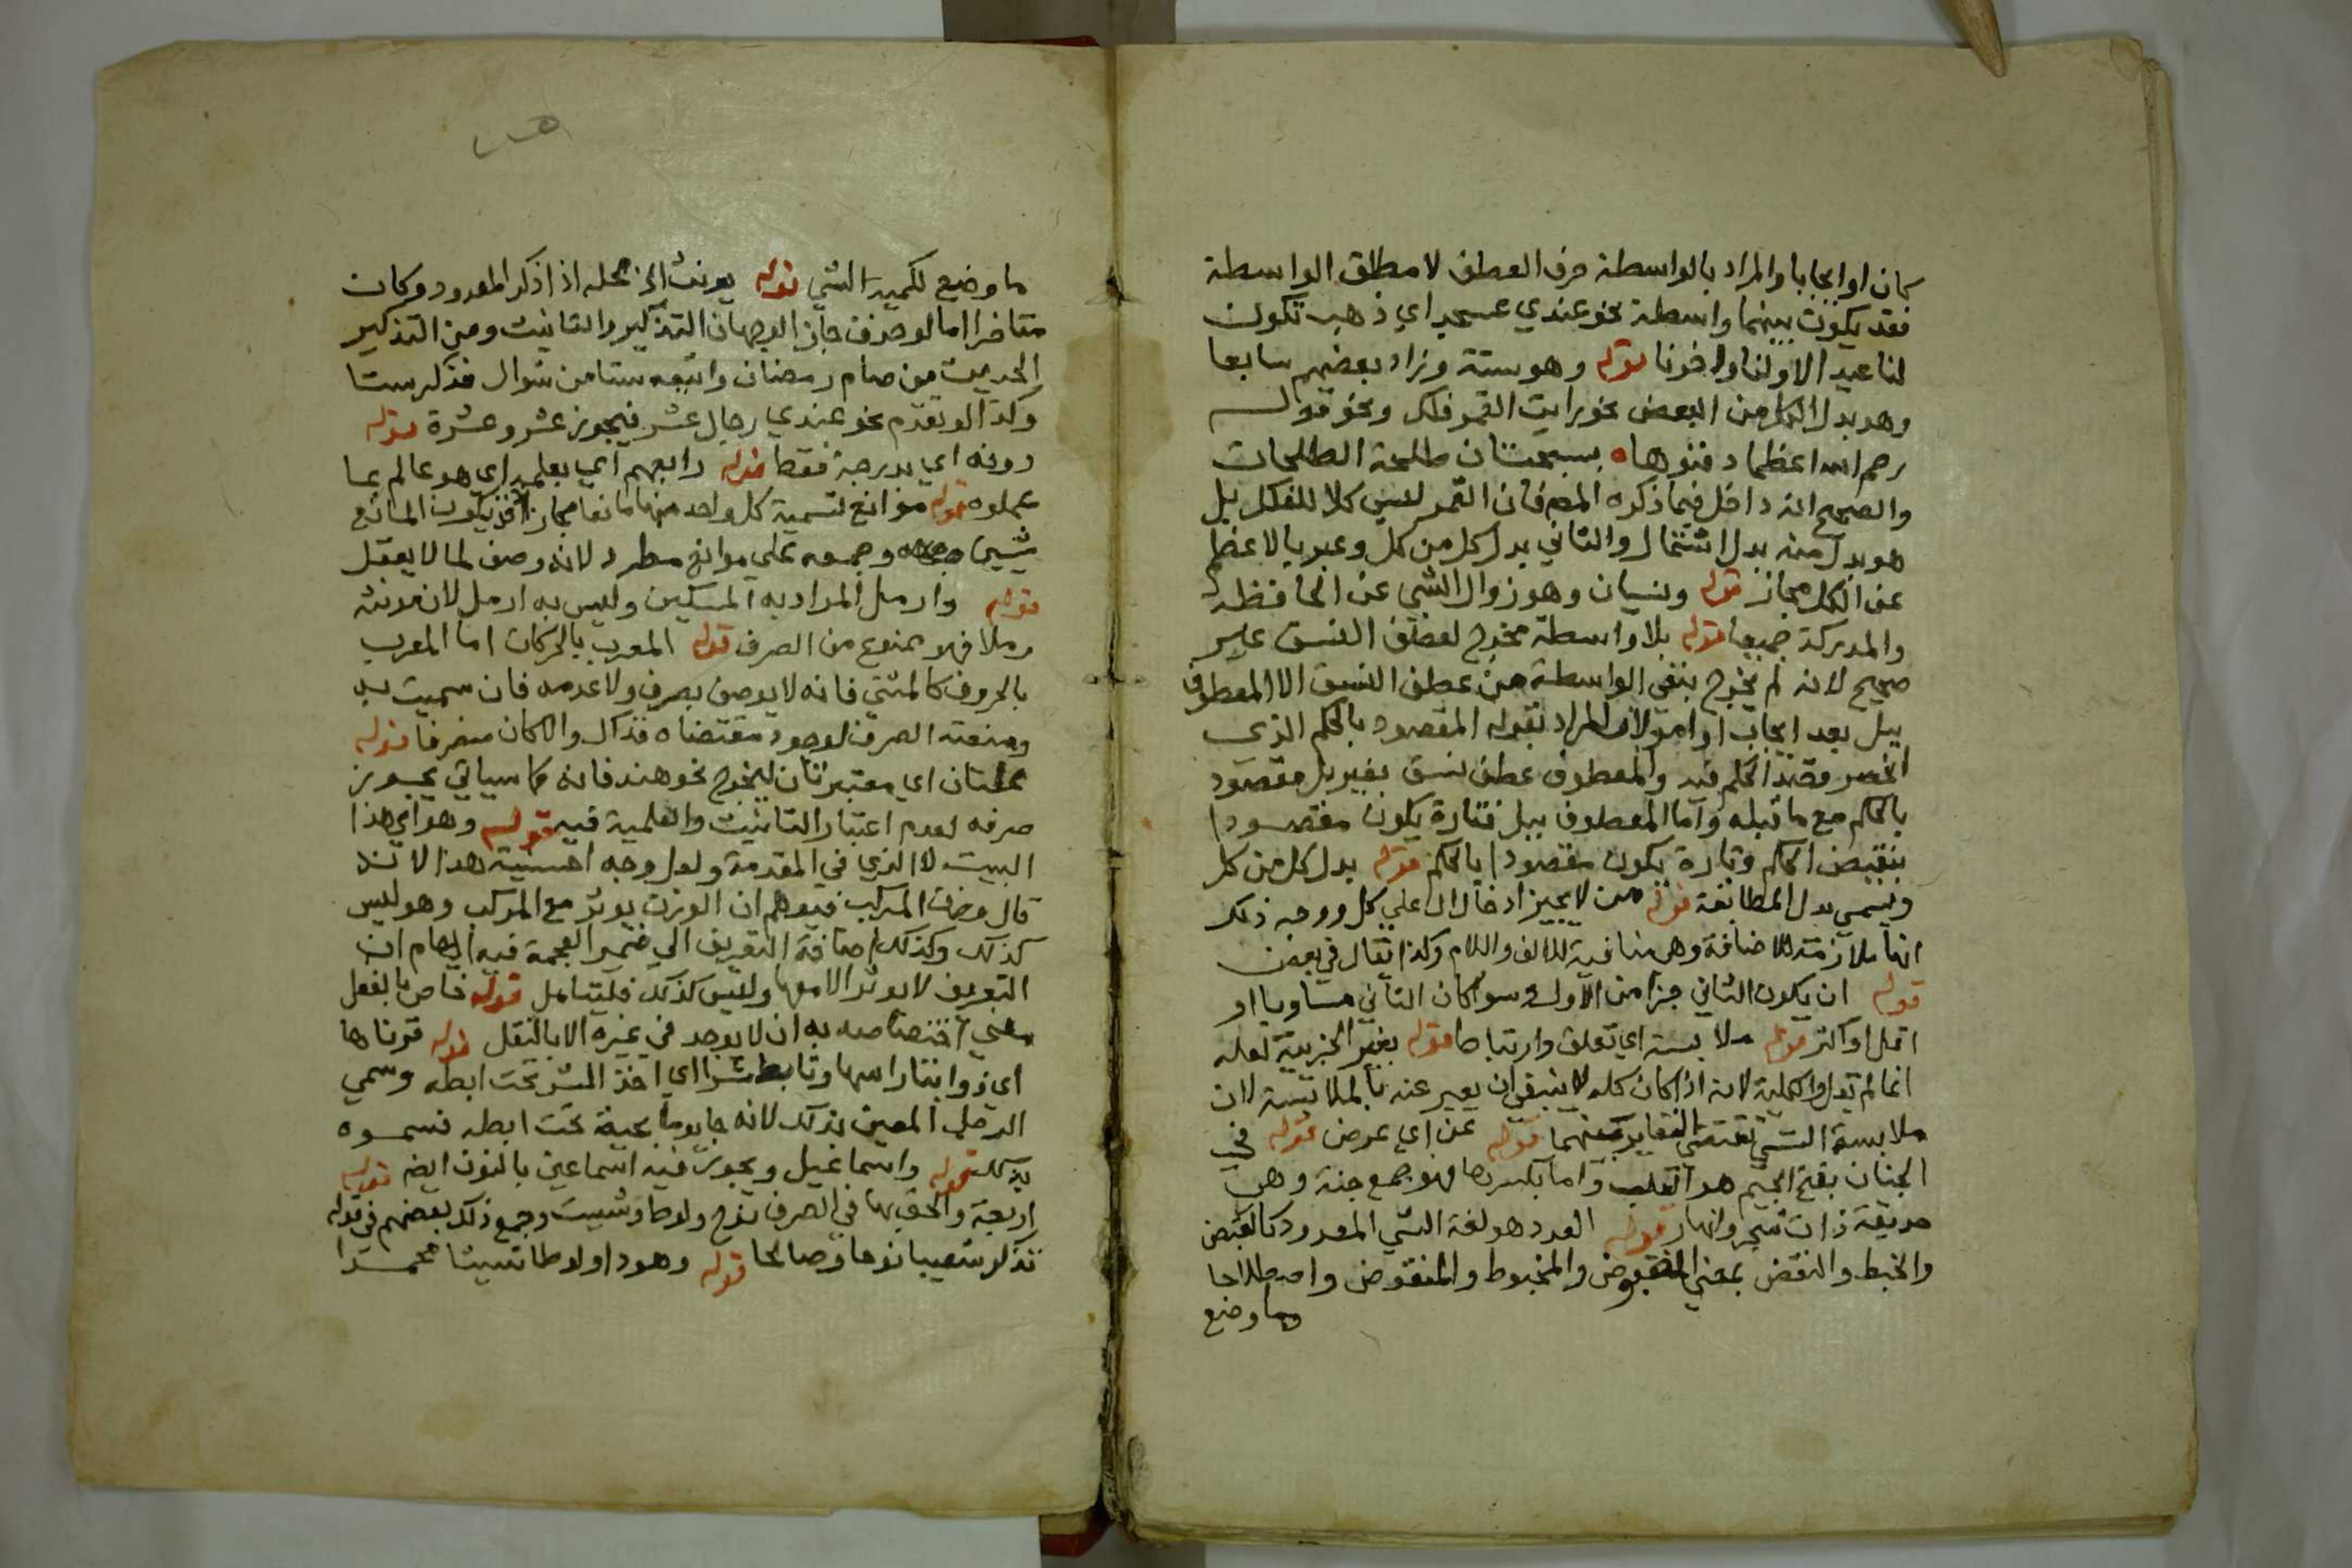 كان او ايجابا والمراد بالواسطة حرف العطف لا مطلق الواسطة
فقد يكون بينهما واسطة نحو عندي عسجد اي ذهب تكون
لنا عيد الاولنا واخرنا قوله وهو ستة وزاد بعضهم سابعا
وهو بدل الكل من البعض نحو رايت القمر فلك ونحو قوله
رحم الله اعظما دفنوها بسجستان طلحة الطلحات
والصحيح انه داخل فيما ذكره المص فان القمر ليس كلا للفلك بل
هو بدل منه بدل اشتمال والثاني بدل كل من كل وعبر بالاعظم
عن الكل مجاز قوله ونسيان وهو زوال الشي عن الحافظة
والمدركة جميعا قوله بلا واسطة مخرج لعطف النسق غير
صحيح لانه لم يخرج بنفي الواسطة من عطف النسق الا المعطوف
ببل بعد ايجاب او امر لان المراد بقوله المقصود بالحكم الذي
انحصر قصد الحكم فيه والمعطوف عطف نسق بغير بل مقصود
بالحكم مع ما قبله واما المعطوف ببل فتارة يكون مقصودا
بنقيض الحكم وتارة يكون مقصودا بالحكم قوله بدل كل من كل
ويسمي بدل المطابقة قوله من لا يجيز ادخال ال علي كل ووجه ذلك
انها ملازمة للاضافة وهي منافية للالف واللام وكذا يقال في بعض
قوله ان يكون الثاني جزا من الاول سوا كان الثاني مساويا او
اقل او اكثر قوله ملابسة اي تعلق وارتباط قوله بغير الجزيية لعله
انما لم يقل والكلية لانه اذا كان كله لا ينبغي ان يعبر عنه بالملابسة لان
ملابسة الشي تقتضي التغاير بينهما قوله عن اي عرض قوله في
الجنان بفتح الجيم هو القلب واما بكسرها فهو جمع جنة وهي
حديقة ذات شجر وانهار قوله العدد هو لغة الشي المعدود كالقبض
والخبط والنقض بمعني المقبوض والمخبوط والمنقوض واصطلاحا
ما وضع
ما وضع لكمية الشي قوله يونث الخ محله اذا ذكر المعدود وكان
متاخرا اما لو حذف جاز الوجهان التذكير والتانيث ومن التذكير
الحديث من صام رمضان واتبعه ستا من شوال فذكر ستا
وكذا لو تقدم نحو عندي رجال عشر فيجوز عشر وعشرة قوله
دونه اي بدرجة فقط قوله رابعهم اي بعلمه اي هو عالم بما
عملوه قوله موانع لتسمية كل واحد منهما مانعا مجاز اذ يكون المانع
شيين وجمعه علي موانع مطرد لانه وصف لما لا يعقل
قوله وارمل المراد به المسكين وليس به ارمل لان مونثه
رملا فهو ممنوع من الصرف قوله المعرب بالحركات اما المعرب
بالحروف كالمثني فانه لا يوصف بصرف ولا عدمه فان سميت به
ومنعته الصرف لوجود مقتضاه فذاك والا كان منصرفا قوله
علتان اي معتبرتان ليخرج نحو هند فانه كما سياتي يجوز
صرفه لعدم اعتبار التانيث والعلمية فيه قوله وهو اي هذا
البيت لا الذي في المقدمة ولعل وجه احسنية هذا لانه
قال وزن المركب فيوهم ان الوزن يوثر مع المركب وهو ليس
كذلك وكذلك اضافة التعريف الي ضمير العجمة فيه ايهام ان
التعريف لا يوثر الا معها وليس كذلك فليتامل قوله خاص بالفعل
معني اختصاصه به ان لا يوجد في غيره الا بالنقل قوله قرناها
اي ذوابتا راسها وتابط شرا اي اخذ الشر تحت ابطه وسمي
الرجل المعين بذلك لانه جا يوما بحية تحت ابطه فسموه
بذلك قوله واسماعيل ويجوز فيه اسماعين بالنون ايض قوله
اربعة والحق بها في الصرف نوح ولوط وشيث وجمع ذلك بعضهم في قوله
تذكر شعيبا نوحا وصالحا قوله وهودا ولوطا شيثا محمدا